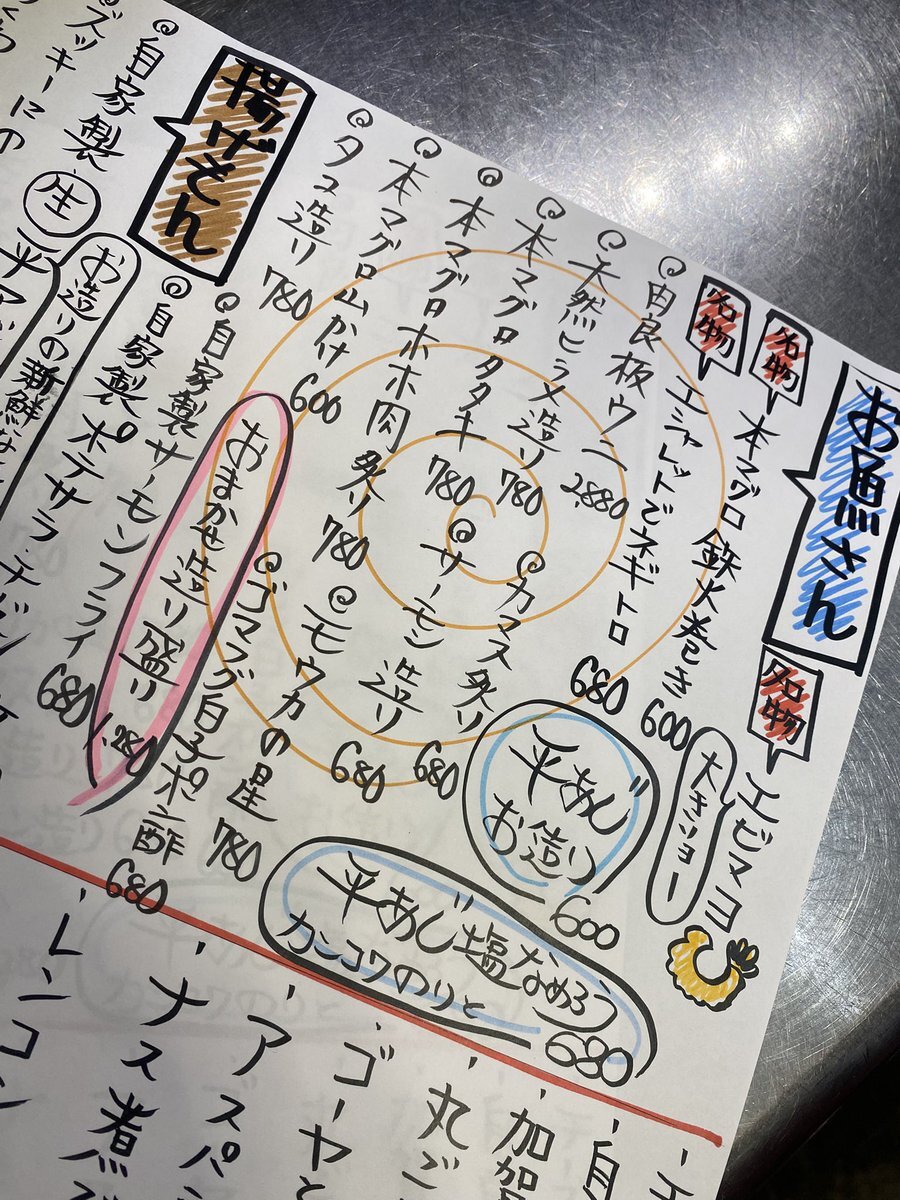 お魚さん
名物
エビマヨ
大きいヨー
名物
本マグロ鉄火巻き 600
名物
エシャレットでネギトロ 680
由良板ウニ 2,880
天然ヒラメ造り 780
本マグロタタキ 780
本マグロホホ肉炙り 780
本マグロ山かけ 600
タコ造り 780
カマス炙り 680
サーモン造り 680
モウカの星 780
ゴマフグ白子ポン酢 680
おまかせ造り盛り 1,280
平あじお造り 600
平あじ塩なめろう
カンコワのりと 680
揚げもん
自家製サーモンフライ 680
自家製ポテサラ
自家製
お造りの新鮮な
生
平ア
ズッキーニの
レンコン
ナス煮
アスパ
ゴーヤと
丸ご
加賀
自